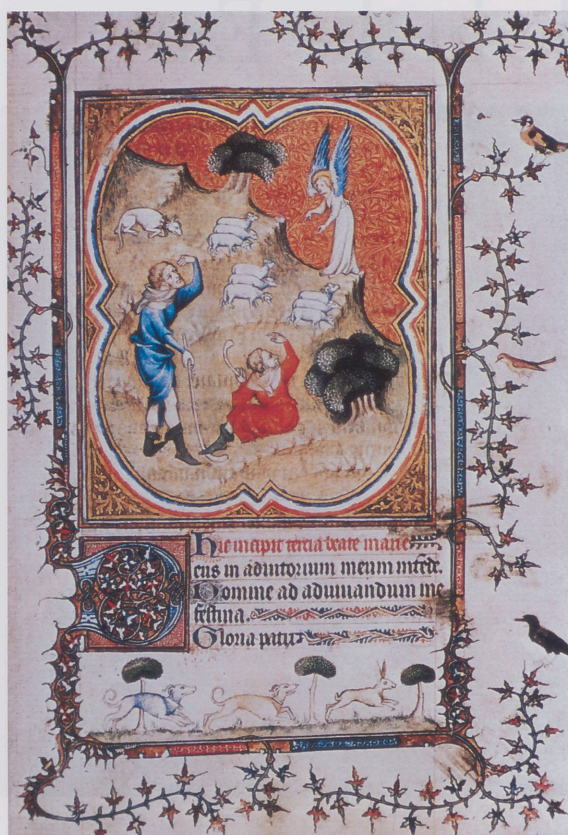 Hic incipit tercia beate marie
Deus in adiutorium meum intēde.
Domine ad adiuuandum me
festina.
Gloria patri